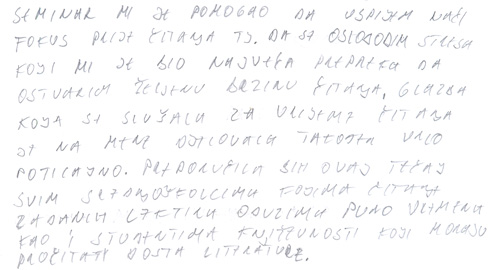 SEMINAR MI JE POMOGAO DA USPIJEM NAĆI
FOKUS PRIJE ČITANJA TJ. DA SE OSLOBODIM STRESA
KOJI MI JE BIO NAJVEĆA PREPREKA DA
OSTVARIM ŽELJENU BRZINU ČITANJA. GLAZBA
KOJA SE SLUŠALA ZA VRIJEME ČITANJA
JE NA MENE DJELOVALA TAKOĐER VRLO
POTICAJNO. PREPORUČILA BIH OVAJ TEČAJ
SVIM SREDNJOŠKOLCIMA KOJIMA ČITANJE
ZADANIH LEKTIRA ODUZIMA PUNO VREMENA
KAO I STUDENTIMA KNJIŽEVNOSTI KOJI MORAJU
PROČITATI DOSTA LITERATURE.